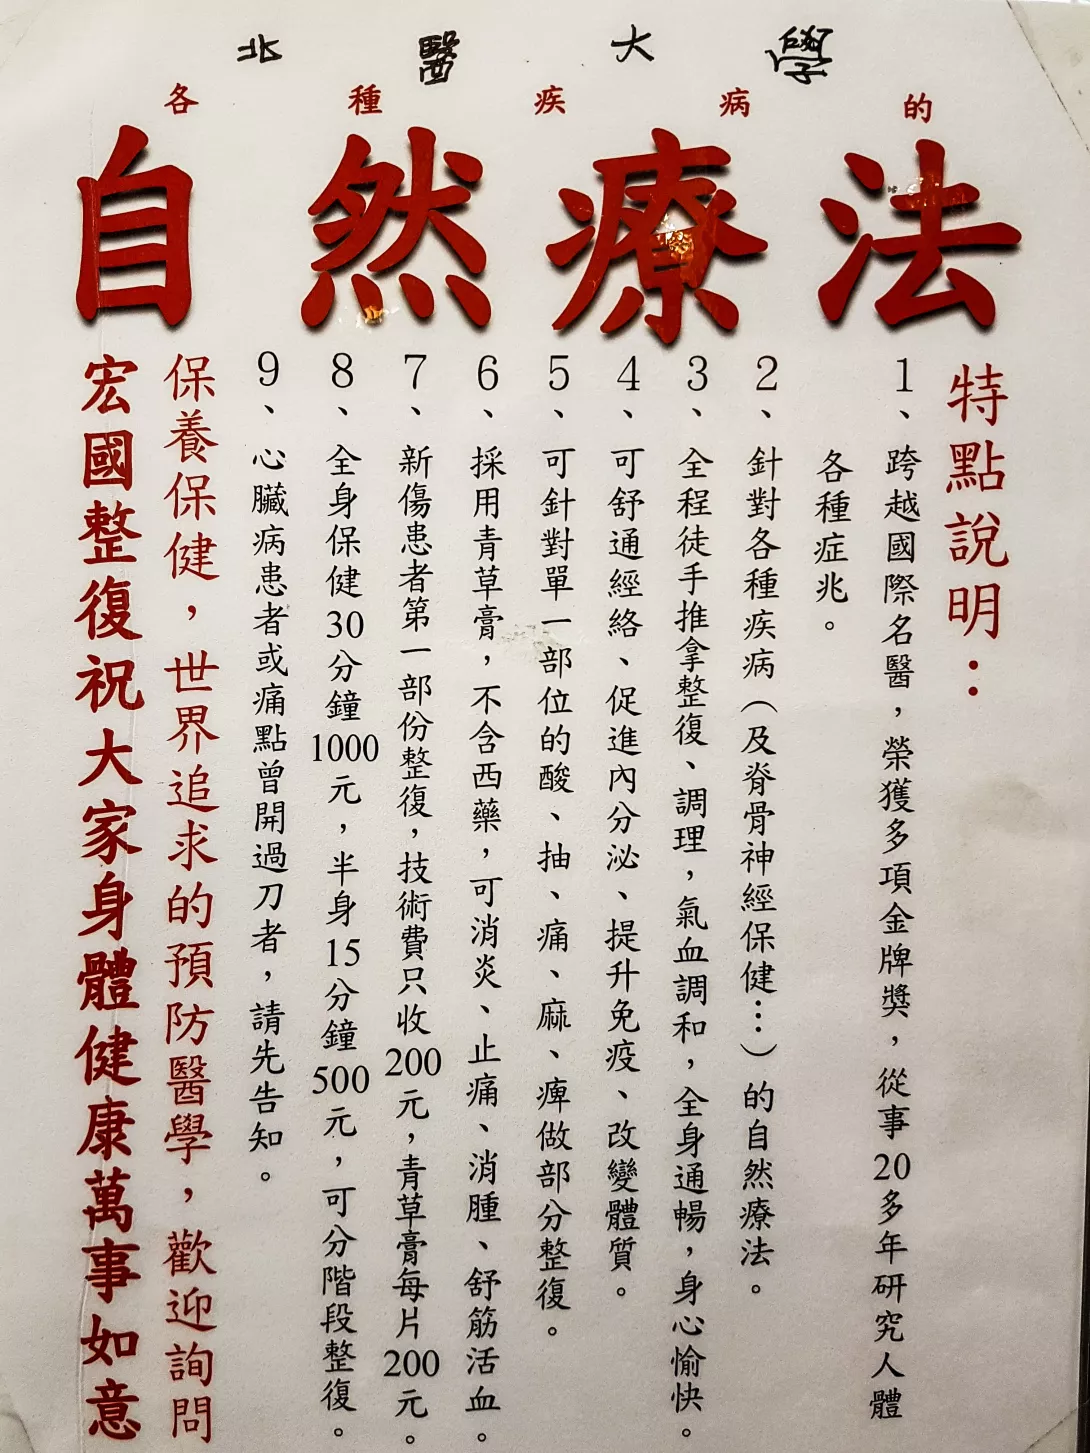 北醫大學
各種疾病的
自然療法
特點說明：
1、跨越國際名醫，榮獲多項金牌獎，從事20多年研究人體
各種症兆。
2、針對各種疾病（及脊骨神經保健…）的自然療法。
3、全程徒手推拿整復、調理，氣血調和，全身通暢，身心愉快。
4、可舒通經絡、促進內分泌、提升免疫、改變體質。
5、可針對單一部位的酸、抽、痛、麻、痺做部分整復。
6、採用青草膏，不含西藥，可消炎、止痛、消腫、舒筋活血。
7、新傷患者第一部份整復，技術費只收200元，青草膏每片200元。
8、全身保健30分鐘1000元，半身15分鐘500元，可分階段整復。
9、心臟病患者或痛點曾開過刀者，請先告知。
保養保健，世界追求的預防醫學，歡迎詢問
宏國整復祝大家身體健康萬事如意